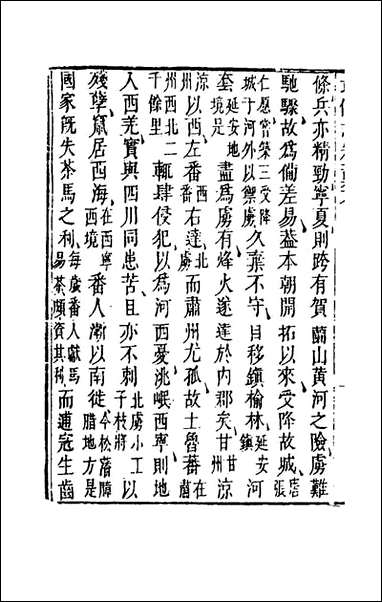 條兵亦精勁寧夏則跨有賀蘭山黃河之險虜難
馳驟故爲備差易葢本朝開拓以來受降故城唐張
仁愿嘗築三受降城于河外以禦虜久棄不守目移鎮榆林延安鎮河
套延安地境是盡爲虜有烽火遂達於内郡矣甘甘州涼
涼州以西左番西番右達北虜而肅州尤孤故土魯番在肅
州西北二千餘里輒肆侵犯以爲河西憂洮岷西寧則地
入西羌實與四川同患苦且亦不刺北虜小王子枝將以
殘孽竄居西海在西寧西境番人漸以南徙今松藩障腊地方是
國家旣失茶馬之利每歲番人獻馬易茶頗資其利而逋寇生齒